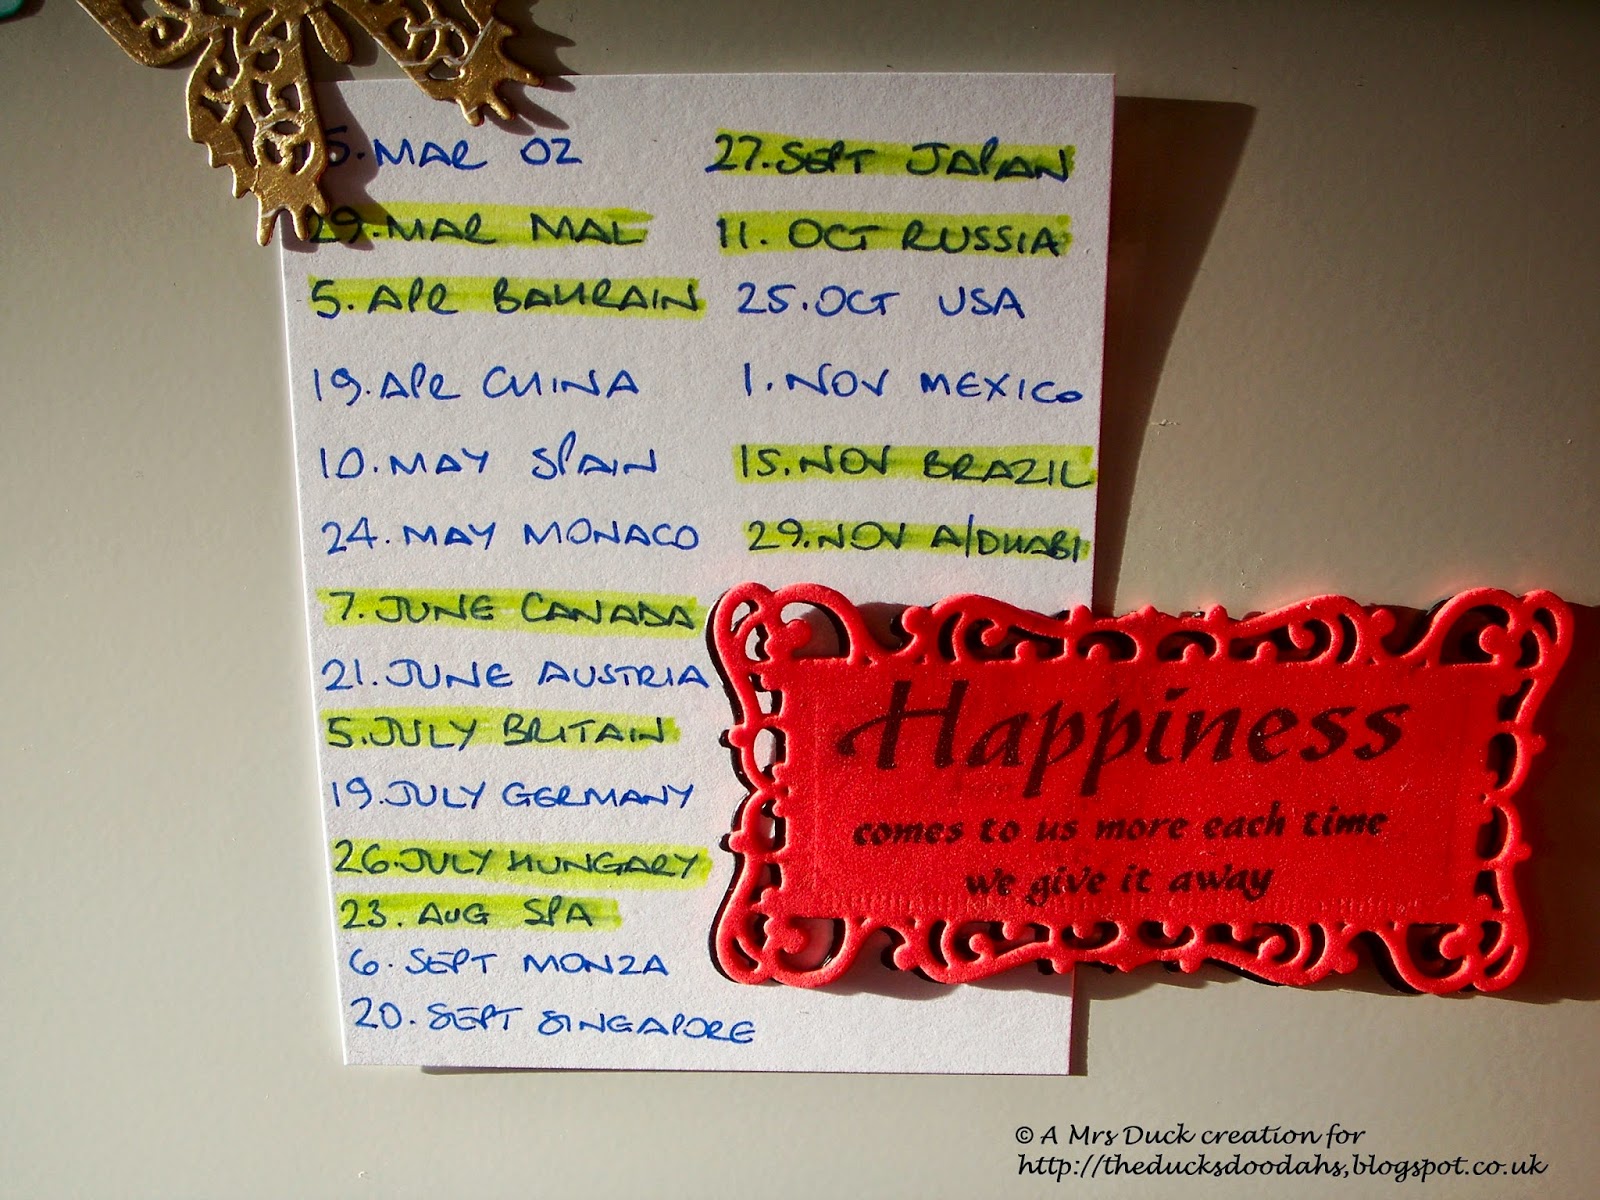 5. MAR OZ
29. MAR MAL
5. APR BAHRAIN
19. APR CHINA
10. MAY SPAIN
24. MAY MONACO
7. JUNE CANADA
21. JUNE AUSTRIA
5. JULY BRITAIN
19. JULY GERMANY
26. JULY HUNGARY
23. AUG SPA
6. SEPT MONZA
20. SEPT SINGAPORE
27. SEPT JAPAN
11. OCT RUSSIA
25. OCT USA
1. NOV MEXICO
15. NOV BRAZIL
29. NOV A/DHABI
Happiness
comes to us more each time
we give it away
© A Mrs Duck creation for
http://theducksdoodahs,blogspot.co.uk